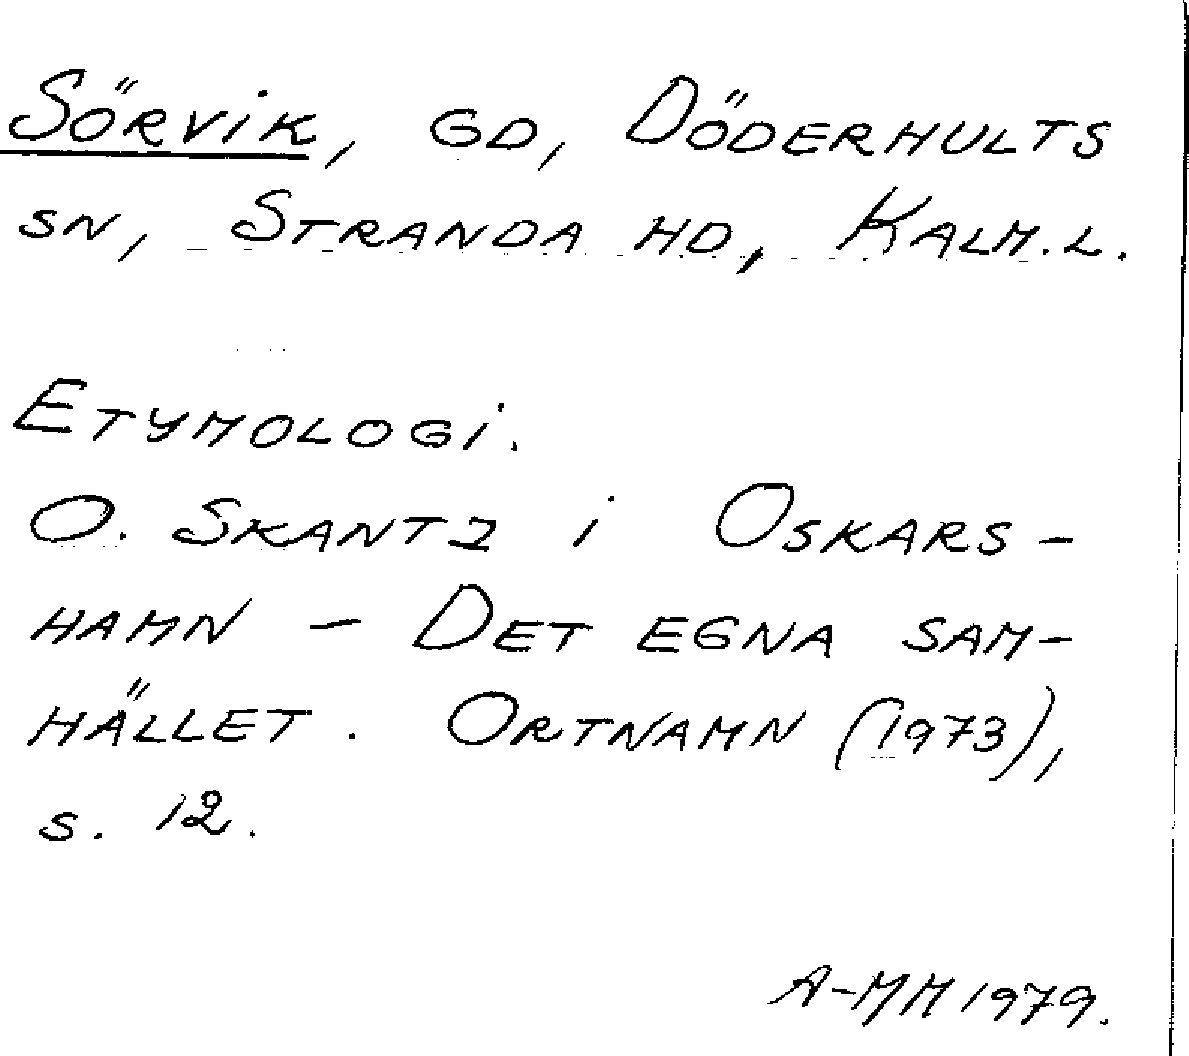 SÖRVIK, GD, DÖDERHULTS
SN, STRANDA HD, KALM.L.
ETYMOLOGI.
O. SKANTZ i OSKARS-
HAMN - DET EGNA SAM-
HÄLLET. ORTNAMN (1973),
s. 12.
A-MM 1979.